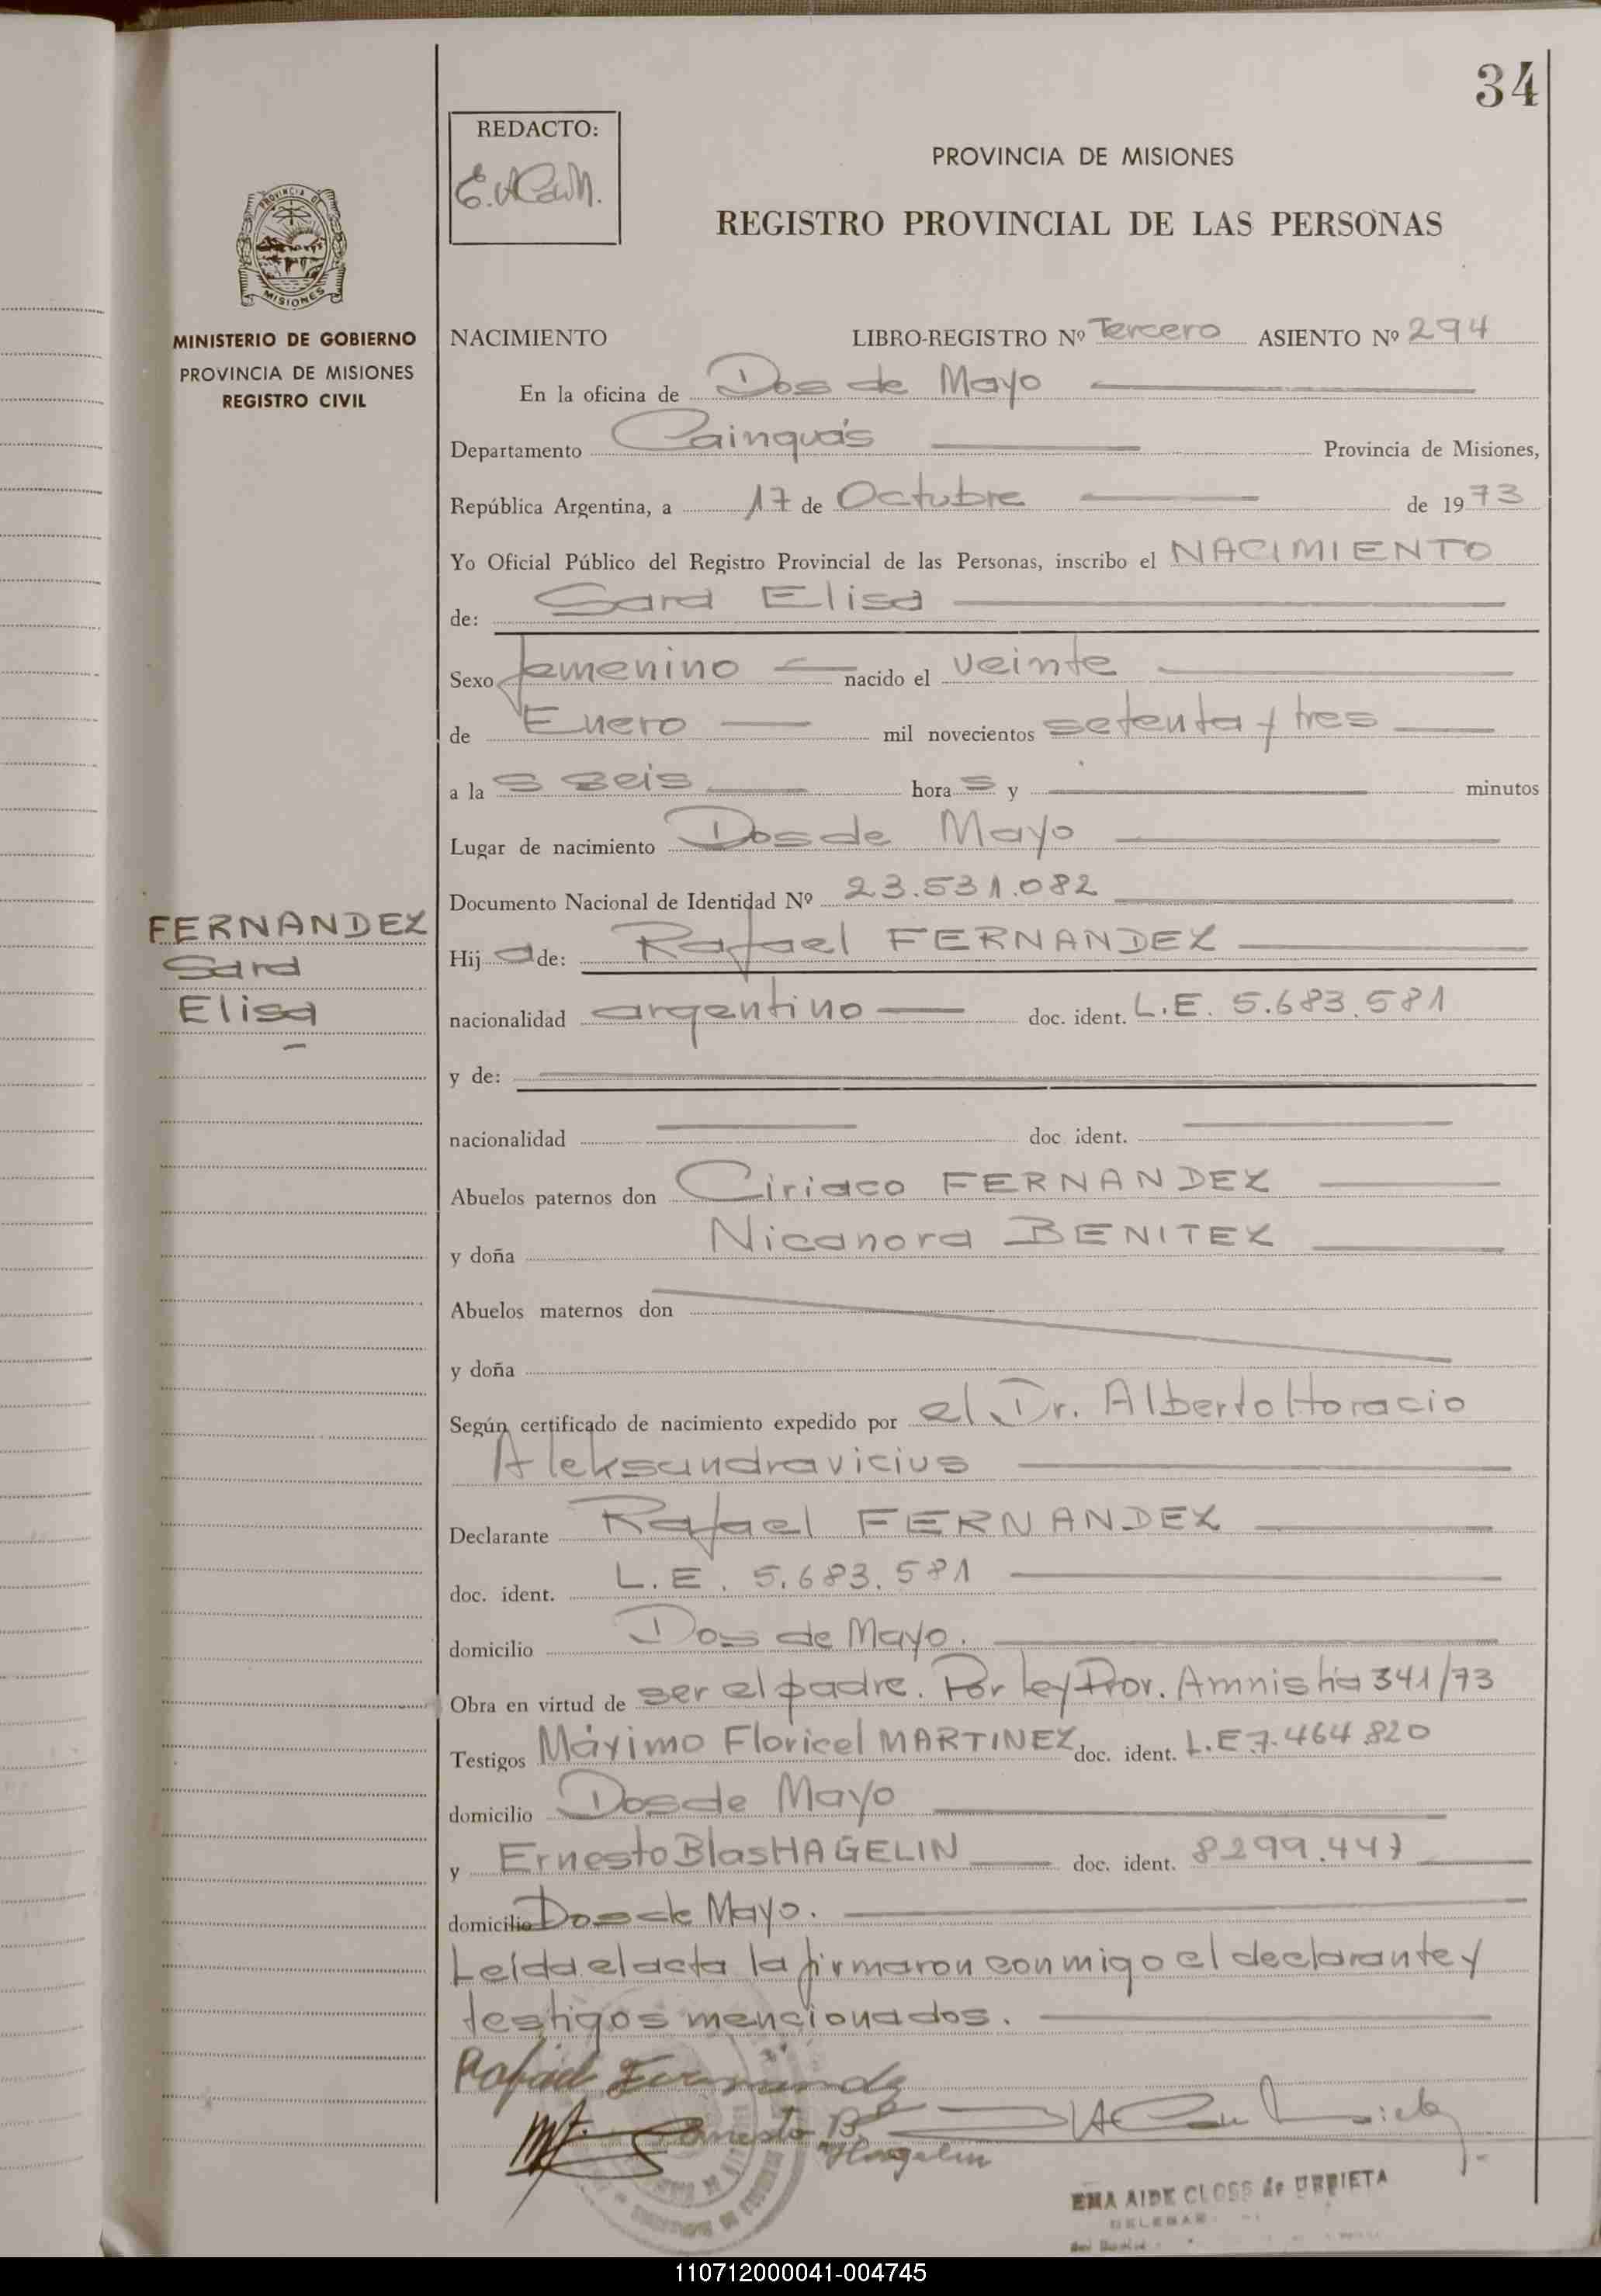 34
REDACTO:
PROVINCIA DE MISIONES
REGISTRO PROVINCIAL DE LAS PERSONAS
PROVINCIA DE
MISIONES
MINISTERIO DE GOBIERNO
PROVINCIA DE MISIONES
REGISTRO CIVIL
NACIMIENTO LIBRO-REGISTRO Nº Tercero ASIENTO Nº 294
En la oficina de Dos de Mayo
Departamento Cainguás Provincia de Misiones,
República Argentina, a 17 de Octubre de 1973
Yo Oficial Público del Registro Provincial de las Personas, inscribo el NACIMIENTO
de: Sara Elisa
Sexo femenino nacido el veinte
de Enero mil novecientos setenta y tres
a las seis horas y minutos
Lugar de nacimiento Dos de Mayo
Documento Nacional de Identidad Nº 23.531.082
FERNANDEZ
Sara
Elisa
Hija de: Rafael FERNANDEZ
nacionalidad argentino doc. ident. L.E. 5.683.581
y de:
nacionalidad doc ident.
Abuelos paternos don Ciriaco FERNANDEZ
y doña Nicanora BENITEZ
Abuelos maternos don
y doña
Según certificado de nacimiento expedido por el Dr. Alberto Horacio
Aleksandravicius
Declarante Rafael FERNANDEZ
doc. ident. L.E. 5.683.581
domicilio Dos de Mayo.
Obra en virtud de ser el padre. Por Ley Prov. Amnistía 341/73
Testigos Máximo Floricel MARTINEZ doc. ident. L.E 7.464.820
domicilio Dos de Mayo
y Ernesto Blas HAGELIN doc. ident. 8299.447
domicilio Dos de Mayo.
Leída el acta la firmaron conmigo el declarante y
testigos mencionados.
Rafael Fernandez
Ernesto B.
Hagelin
EMA AIDE CLOSS de URRIETA
110712000041-004745